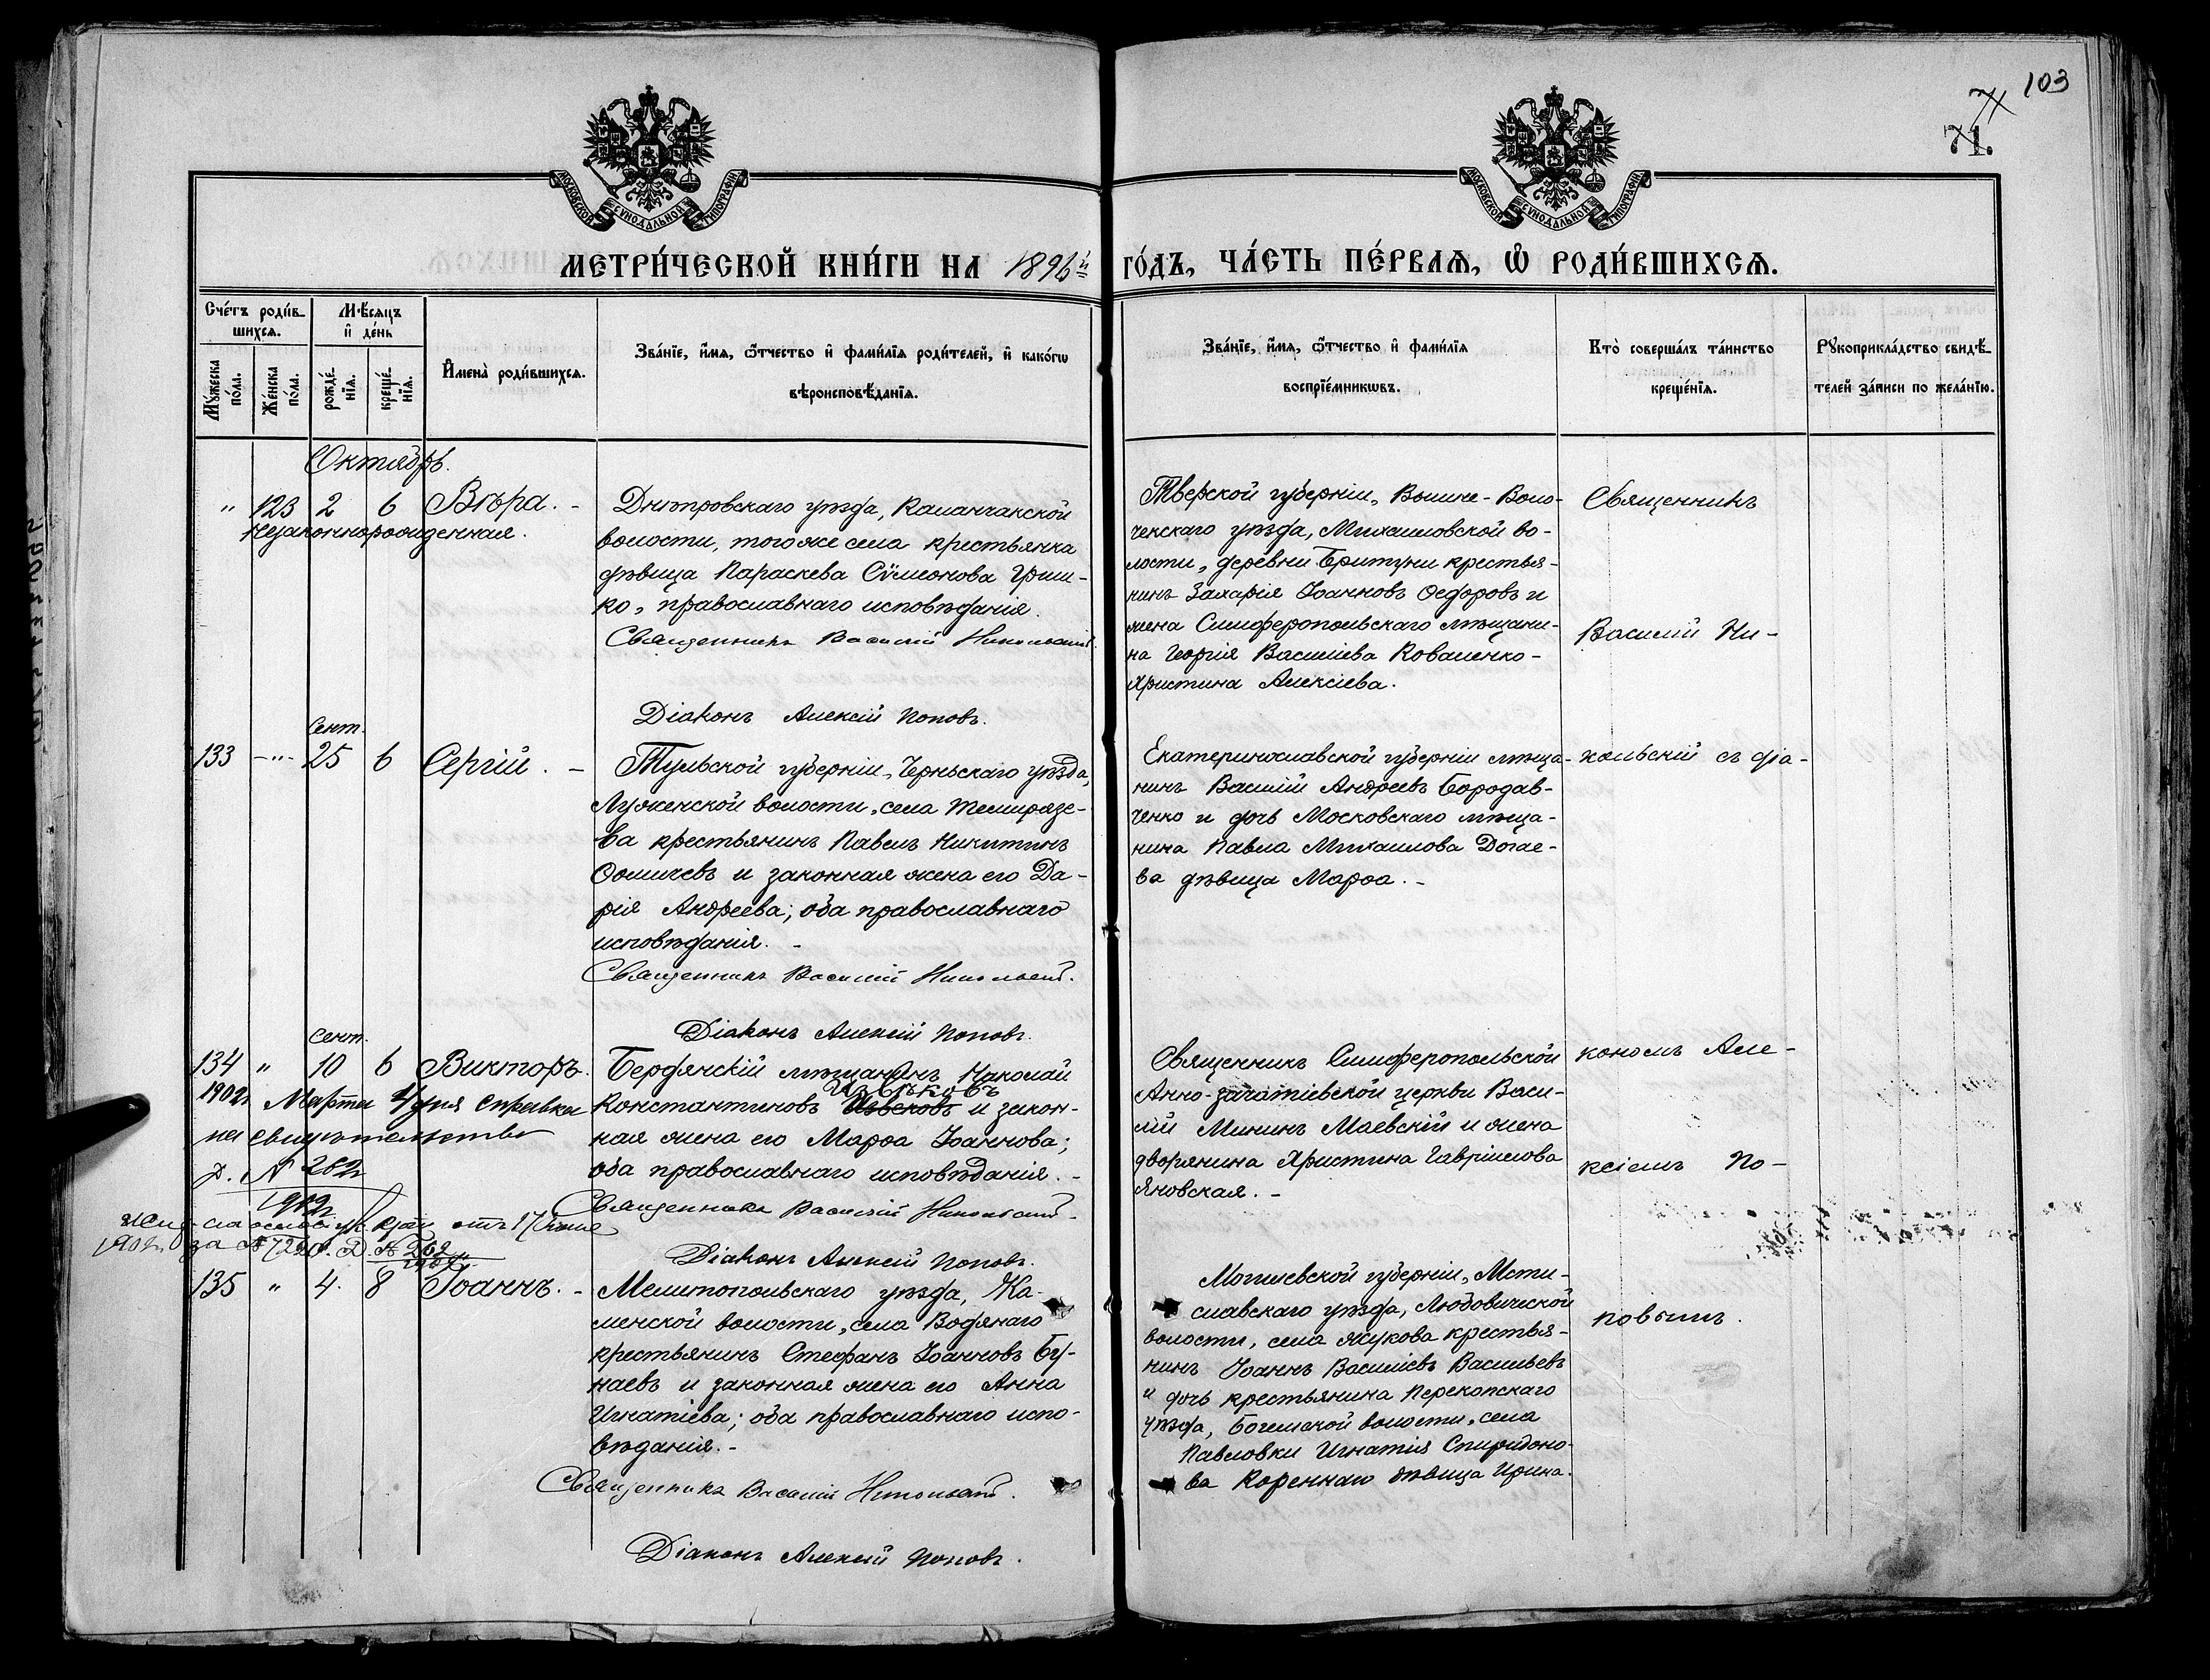 103
71.
МОСКОВСКОЙ СѴНОДАЛЬНОЙ ТИПОГРАФІИ
МОСКОВСКОЙ СѴНОДАЛЬНОЙ ТИПОГРАФІИ
МЕТРИ́ЧЕСКОЙ КНИ́ГИ НА 1896й ГО́ДЪ, ЧА́СТЬ ПЕ́РВАѦ, Ѡ҆ РОДИ́ВШИХСѦ.
Сче́тъ роди́в-
шихсѧ.
Мѣ́сѧцъ
и҆ де́нь
Мꙋ́жеска по́ла.
Же́нска по́ла.
рожде́-нїѧ.
креще́-нїѧ.
И҆мена̀ роди́вшихсѧ.
Зва́нїе, и҆́мѧ, ѻ҆́тчество и҆ фами́лїѧ роди́телей, и҆ како́гѡ
вѣроисповѣ́данїѧ.
Зва́нїе, и҆́мѧ, ѻ҆́тчество и҆ фами́лїѧ
воспрїе́мникѡвъ.
Кто̀ соверша́лъ та́инство
креще́нїѧ.
Рꙋкоприкла́дство свидѣ́-
телей за́писи по жела́нїю.
Октябрь.
" 123 2 6 Вѣра. -
Незаконнорожденная.
Днѣпровскаго уѣзда, Каланчакской
волости, того же села крестьянка
дѣвица Параскева Сѵмеонова Гриш-
ко, православнаго исповѣданія.
Священникъ Василій Никольскій.
Діаконъ Алексій Поповъ.
Тверской губерніи, Вышне-Воло-
ченскаго уѣзда, Михаиловской во-
лости, деревни Бритуни крестья-
нинъ Захарія Іоанновъ Ѳедоровъ и
жена Симферопольскаго мѣщани-
на Георгія Василіева Коваленко -
Христина Алексіева.
Священникъ
Василій Ни-
Сент.
133 -"- 25 6 Сергій. -
Тульской губерніи, Чернскаго уѣзда,
Луженской волости, села Темирязе-
ва крестьянинъ Павелъ Никитинъ
Ѳомичевъ и законная жена его Да-
рія Андреева; оба православнаго
исповѣданія. -
Священникъ Василій Никольскій.
Діаконъ Алексій Поповъ.
Екатеринославской губерніи мѣща-
нинъ Василій Андреевъ Бородав-
ченко и дочь Московскаго мѣща-
нина Павла Михаилова Догае-
ва дѣвица Марѳа. -
кольскій съ діа-
Сент.
134 " 10 6 Викторъ.
1902г. Марта 4 дня справка
на свидѣтельство
д. № 262
1902г.
за № 7220. Д. № 262
1902г.
Бердянскій мѣщанинъ Николай
Извѣковъ
Константиновъ Извековъ и закон-
ная жена его Марѳа Іоаннова;
оба православнаго исповѣданія. -
Священникъ Василій Никольскій.
Діаконъ Алексій Поповъ.
Священникъ Симферопольской
Анно-зачатіевской церкви Васи-
лій Мининъ Маевскій и жена
дворянина Христина Гавріилова
Яновская. -
кономъ Але-
ксіемъ По-
135 " 4. 8 Іоаннъ. -
Мелитопольскаго уѣзда, Ка-
менской волости, села Водянаго
крестьянинъ Стефанъ Іоанновъ Бу-
наевъ и законная жена его Анна
Игнатіева; оба православнаго испо-
вѣданія. -
Священникъ Василій Никольскій.
Діаконъ Алексій Поповъ.
Могилевской губерніи, Мсти-
славскаго уѣзда, Любовичской
волости, села Жукова крестья-
нинъ Іоаннъ Василіевъ Васильевъ
и дочь крестьянина Перекопскаго
уѣзда, Богемской волости, села
Павловки Игнатія Спиридоно-
ва Кореннаго дѣвица Ирина.
повымъ.